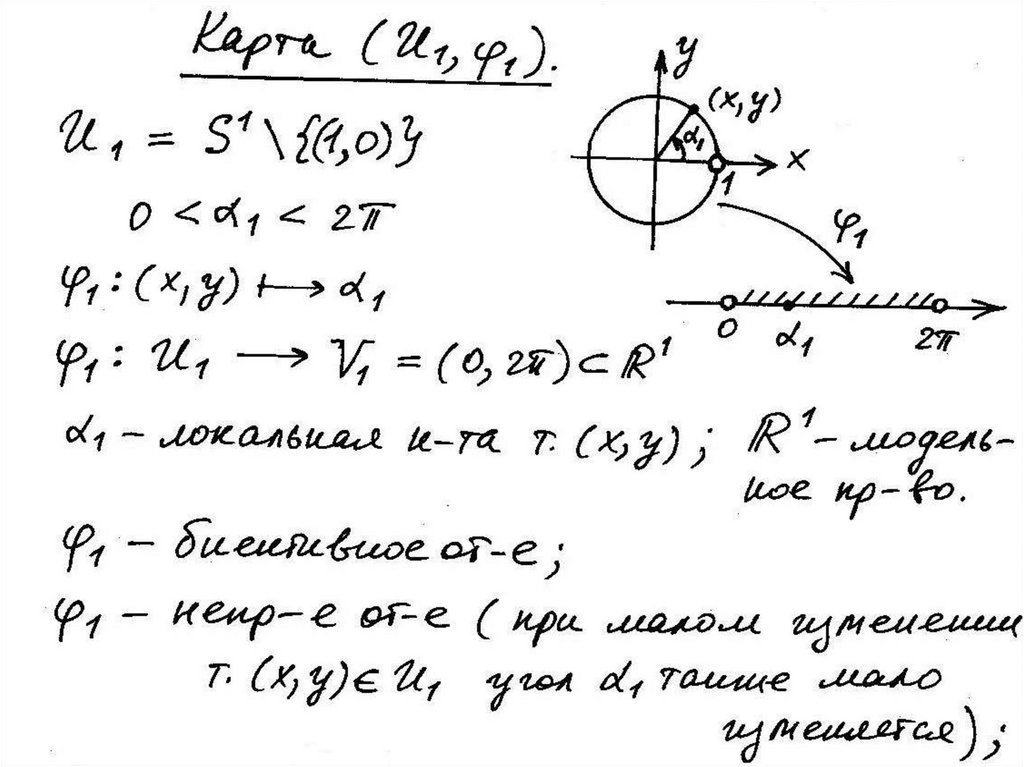 Карта (U₁, φ₁).
U₁ = S¹ \ {(1,0)}
0 < α₁ < 2π
φ₁ : (x, y) ↦ α₁
φ₁ : U₁ → V₁ = (0, 2π) ⊂ ℝ¹
y
(x, y)
α₁
x
1
φ₁
0 α₁ 2π
α₁ – локальная к-та т. (x, y) ; ℝ¹ – модель-
ное пр-во.
φ₁ – биективное от-е ;
φ₁ – непр-е от-е ( при малом изменении
т. (x, y) ∈ U₁ угол α₁ также мало
изменяется) ;